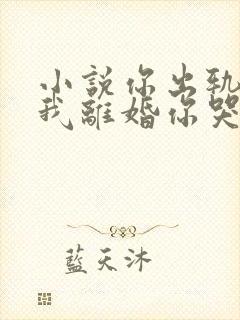 小説你出軌
我離婚你哭
藍天沐